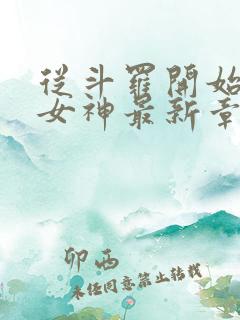 從斗羅開始
女神最新章
卯西
未经同意禁止转载